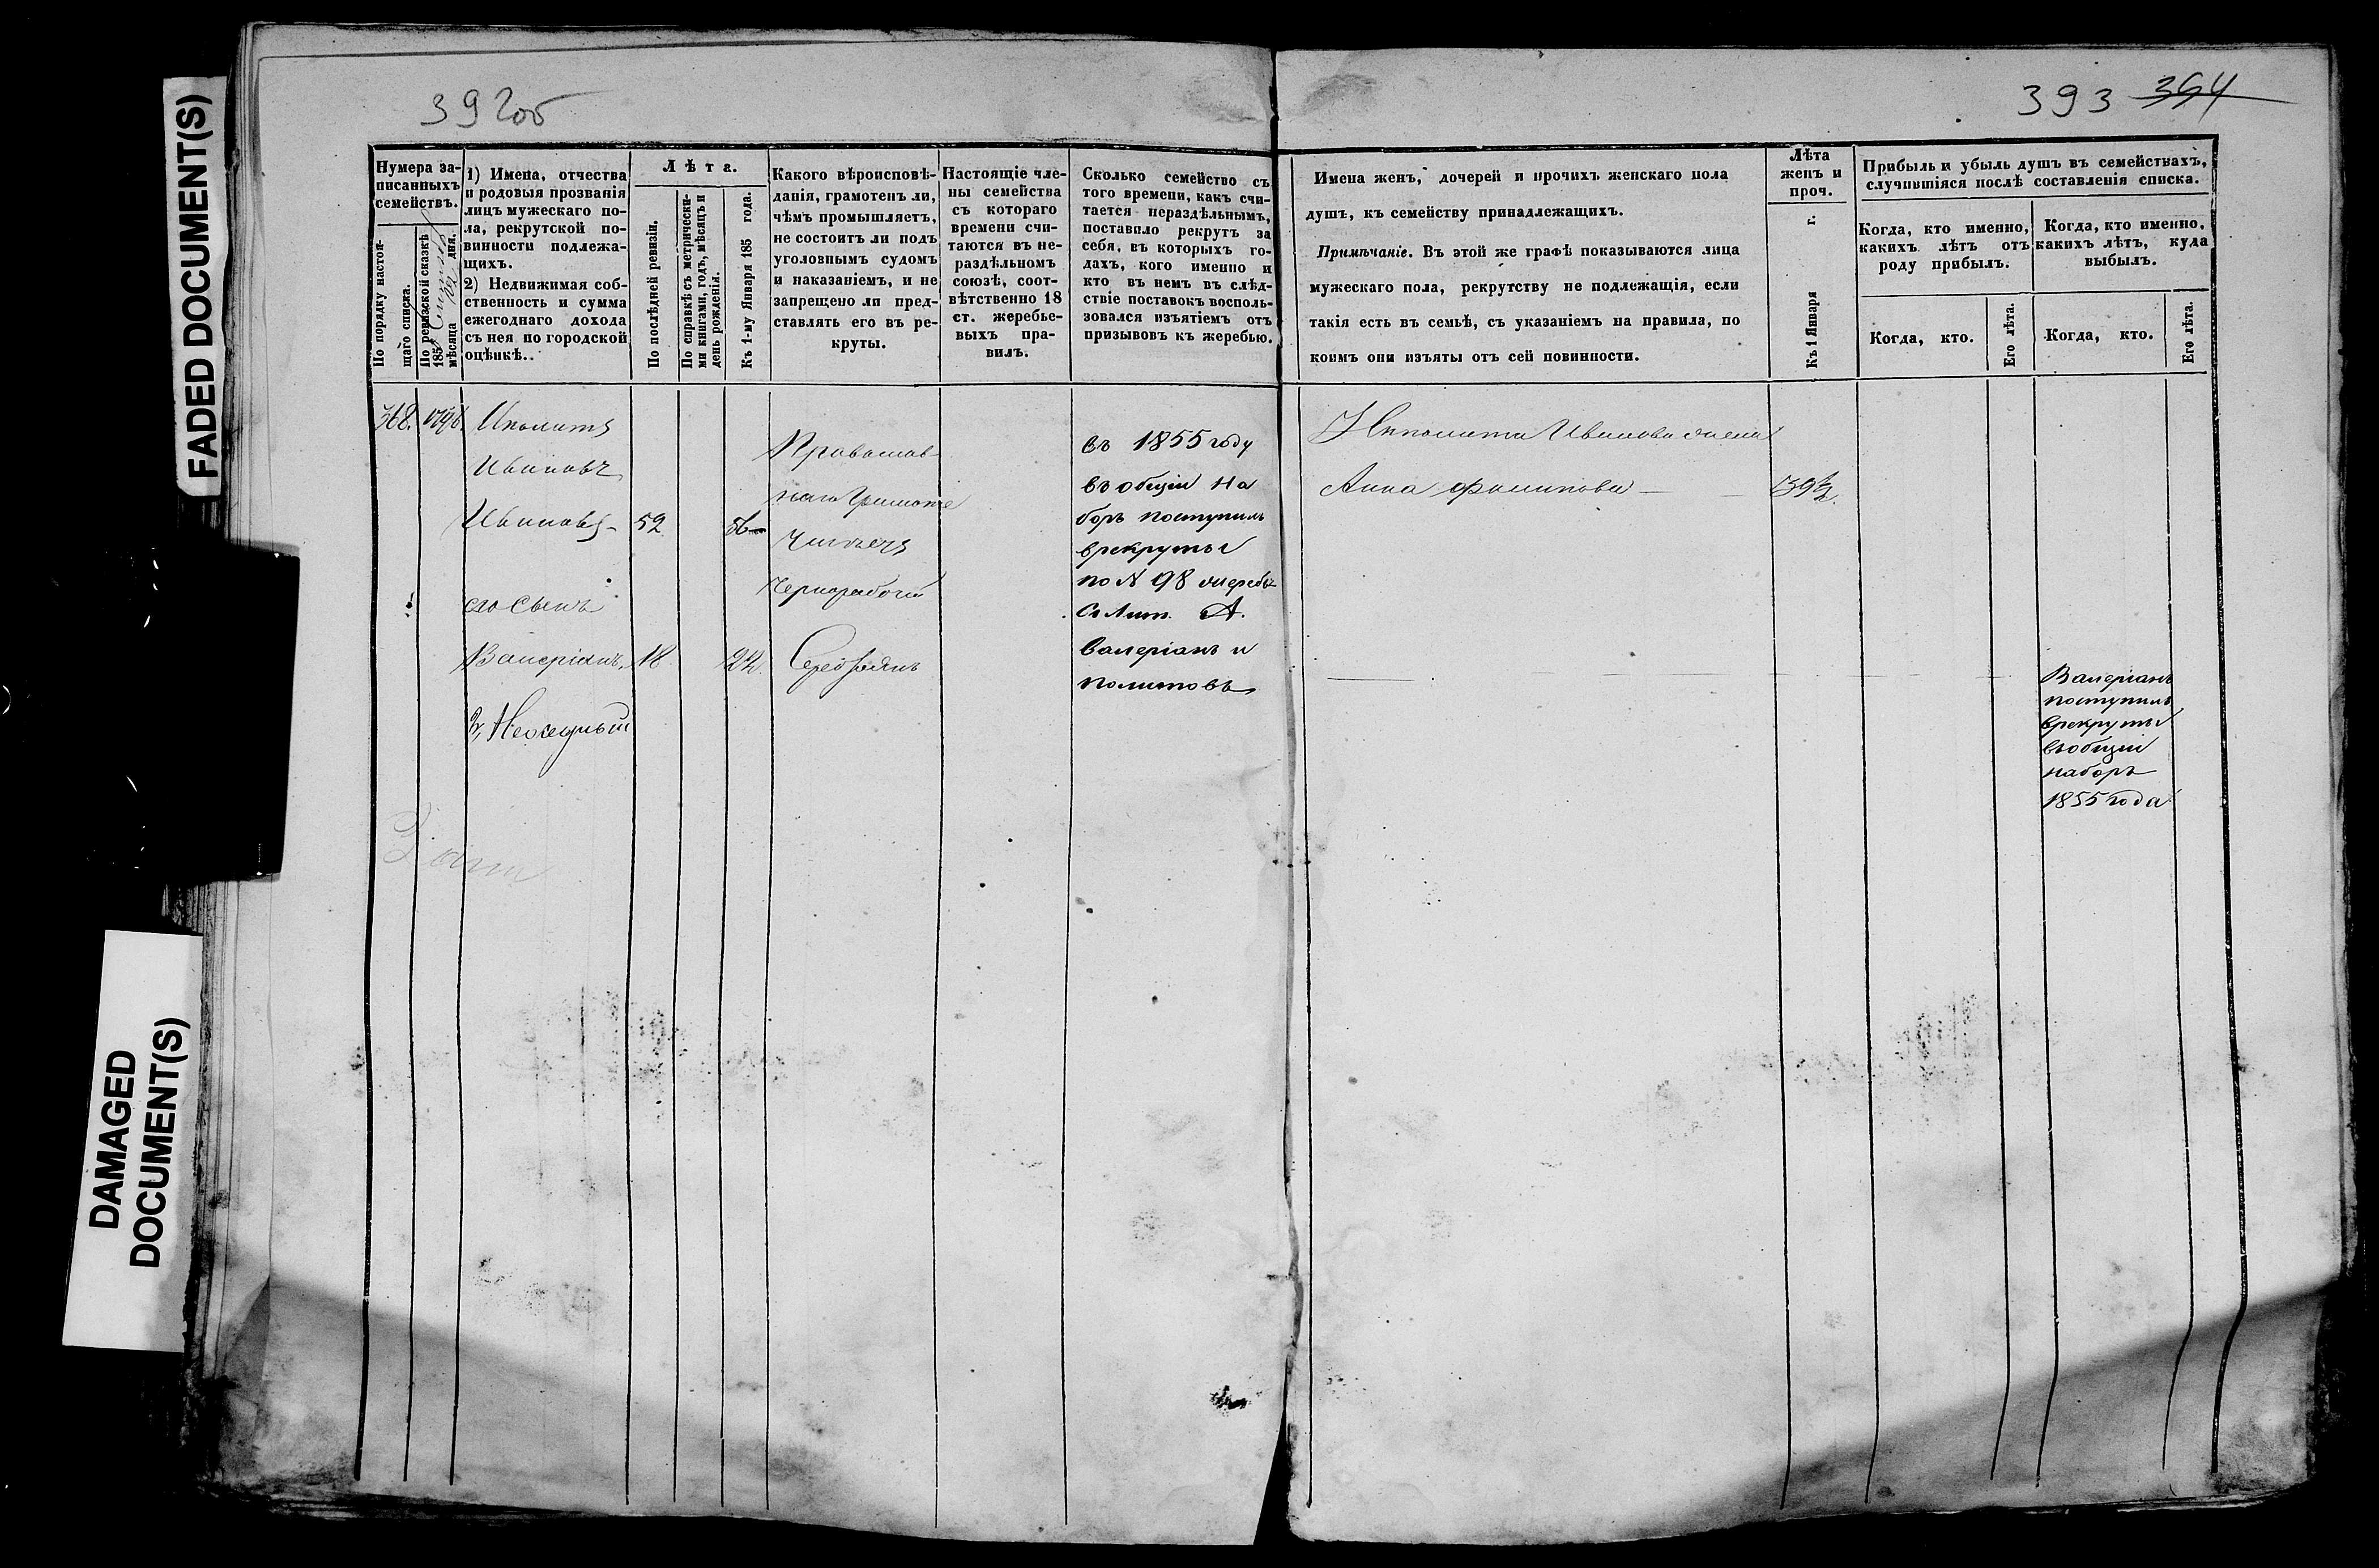 FADED DOCUMENT(S)
DAMAGED
DOCUMENT(S)
392об
393 394
Нумера за-
писанныхъ
семействъ.
По порядку настоя-
щаго списка.
По ревизской сказкѣ
185
мѣсяца дня.
1) Имена, отчества
и родовыя прозванія
лицъ мужескаго по-
ла, рекрутской по-
винности подлежа-
щихъ.
2) Недвижимая соб-
ственность и сумма
ежегоднаго дохода
съ нея по городской
оцѣнкѣ.
Лѣта.
По послѣдней ревизіи.
По справкѣ съ метрически-
ми книгами, годъ, мѣсяцъ и
день рожденія.
Къ 1-му Января 185 года.
Какого вѣроисповѣ-
данія, грамотенъ ли,
чѣмъ промышляетъ,
не состоитъ ли подъ
уголовнымъ судомъ
и наказаніемъ, и не
запрещено ли пред-
ставлять его въ ре-
круты.
Настоящіе чле-
ны семейства
съ котораго
времени счи-
таются въ не-
раздѣльномъ
союзѣ, соот-
вѣтственно 18
ст. жеребье-
выхъ пра-
вилъ.
Сколько семейство съ
того времени, какъ счи-
тается нераздѣльнымъ,
поставило рекрутъ за
себя, въ которыхъ го-
дахъ, кого именно и
кто въ немъ въ слѣд-
ствіе поставокъ восполь-
зовался изъятіемъ отъ
призывовъ къ жеребью.
Имена женъ, дочерей и прочихъ женскаго пола
душъ, къ семейству принадлежащихъ.
Примѣчаніе. Въ этой же графѣ показываются лица
мужескаго пола, рекрутству не подлежащія, если
такія есть въ семьѣ, съ указаніемъ на правила, по
коимъ они изъяты отъ сей повинности.
Лѣта
женъ и
проч.
Къ 1 Января г.
Прибыль и убыль душъ въ семействахъ,
случившіяся послѣ составленія списка.
Когда, кто именно,
какихъ лѣтъ отъ
роду прибылъ.
Когда, кто.
Его лѣта.
Когда, кто именно,
какихъ лѣтъ, куда
выбылъ.
Когда, кто.
Его лѣта.
368.
Иполитъ
Ивановъ
Ивановъ 52 56
его сынъ
Валеріанъ. 18
Православ
наго Грамотѣ
Чернорабочій
въ 1855 году
въ общій на
боръ поступилъ
врекруты
по № 98 очередь
Съ Лит. А.
Валеріанъ и
политовъ
Ипполита Иванова жена
Анна Филипова 39½.
Валеріанъ
поступилъ
врекруты
въобщій
наборъ
1855 года